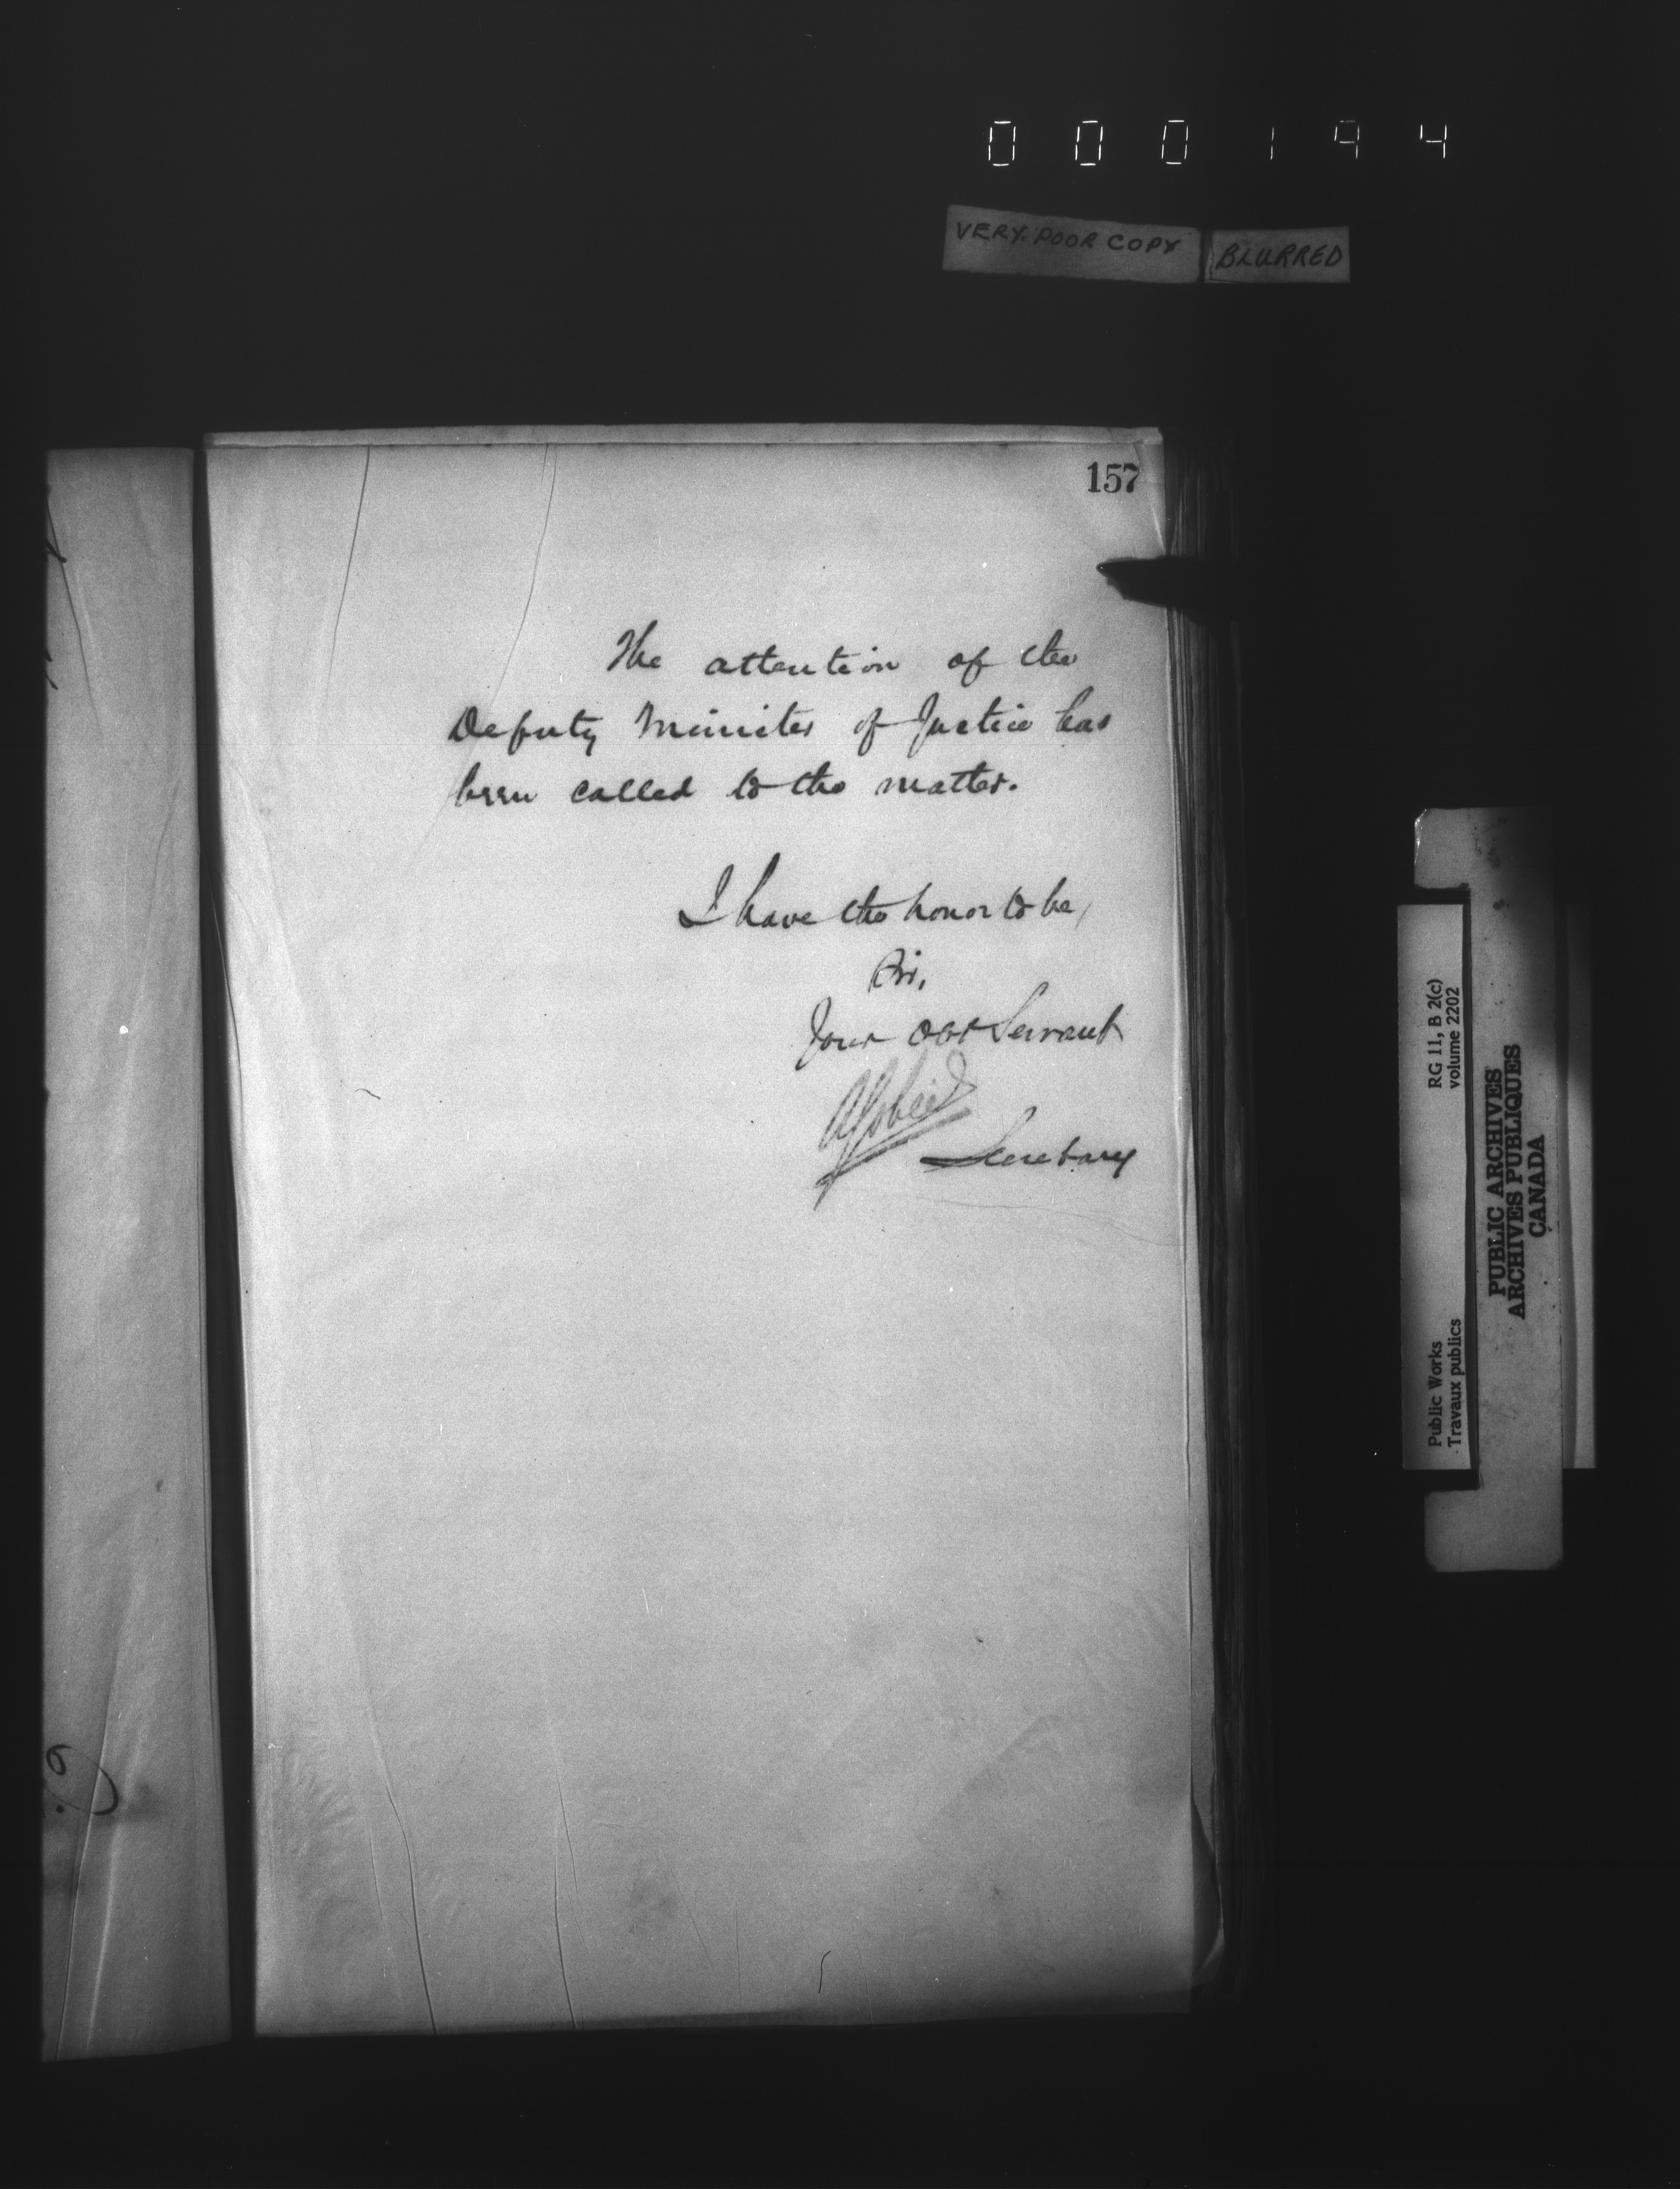 000194
VERY POOR COPY
BLURRED
157
The attention of the
Deputy Minister of Justice has
been called to the matter.
I have the honor to be,
Sir,
Your obt Servant
Secretary
RG 11, B 2(c)
volume 2202
Public Works
Travaux publics
PUBLIC ARCHIVES
ARCHIVES PUBLIQUES
CANADA